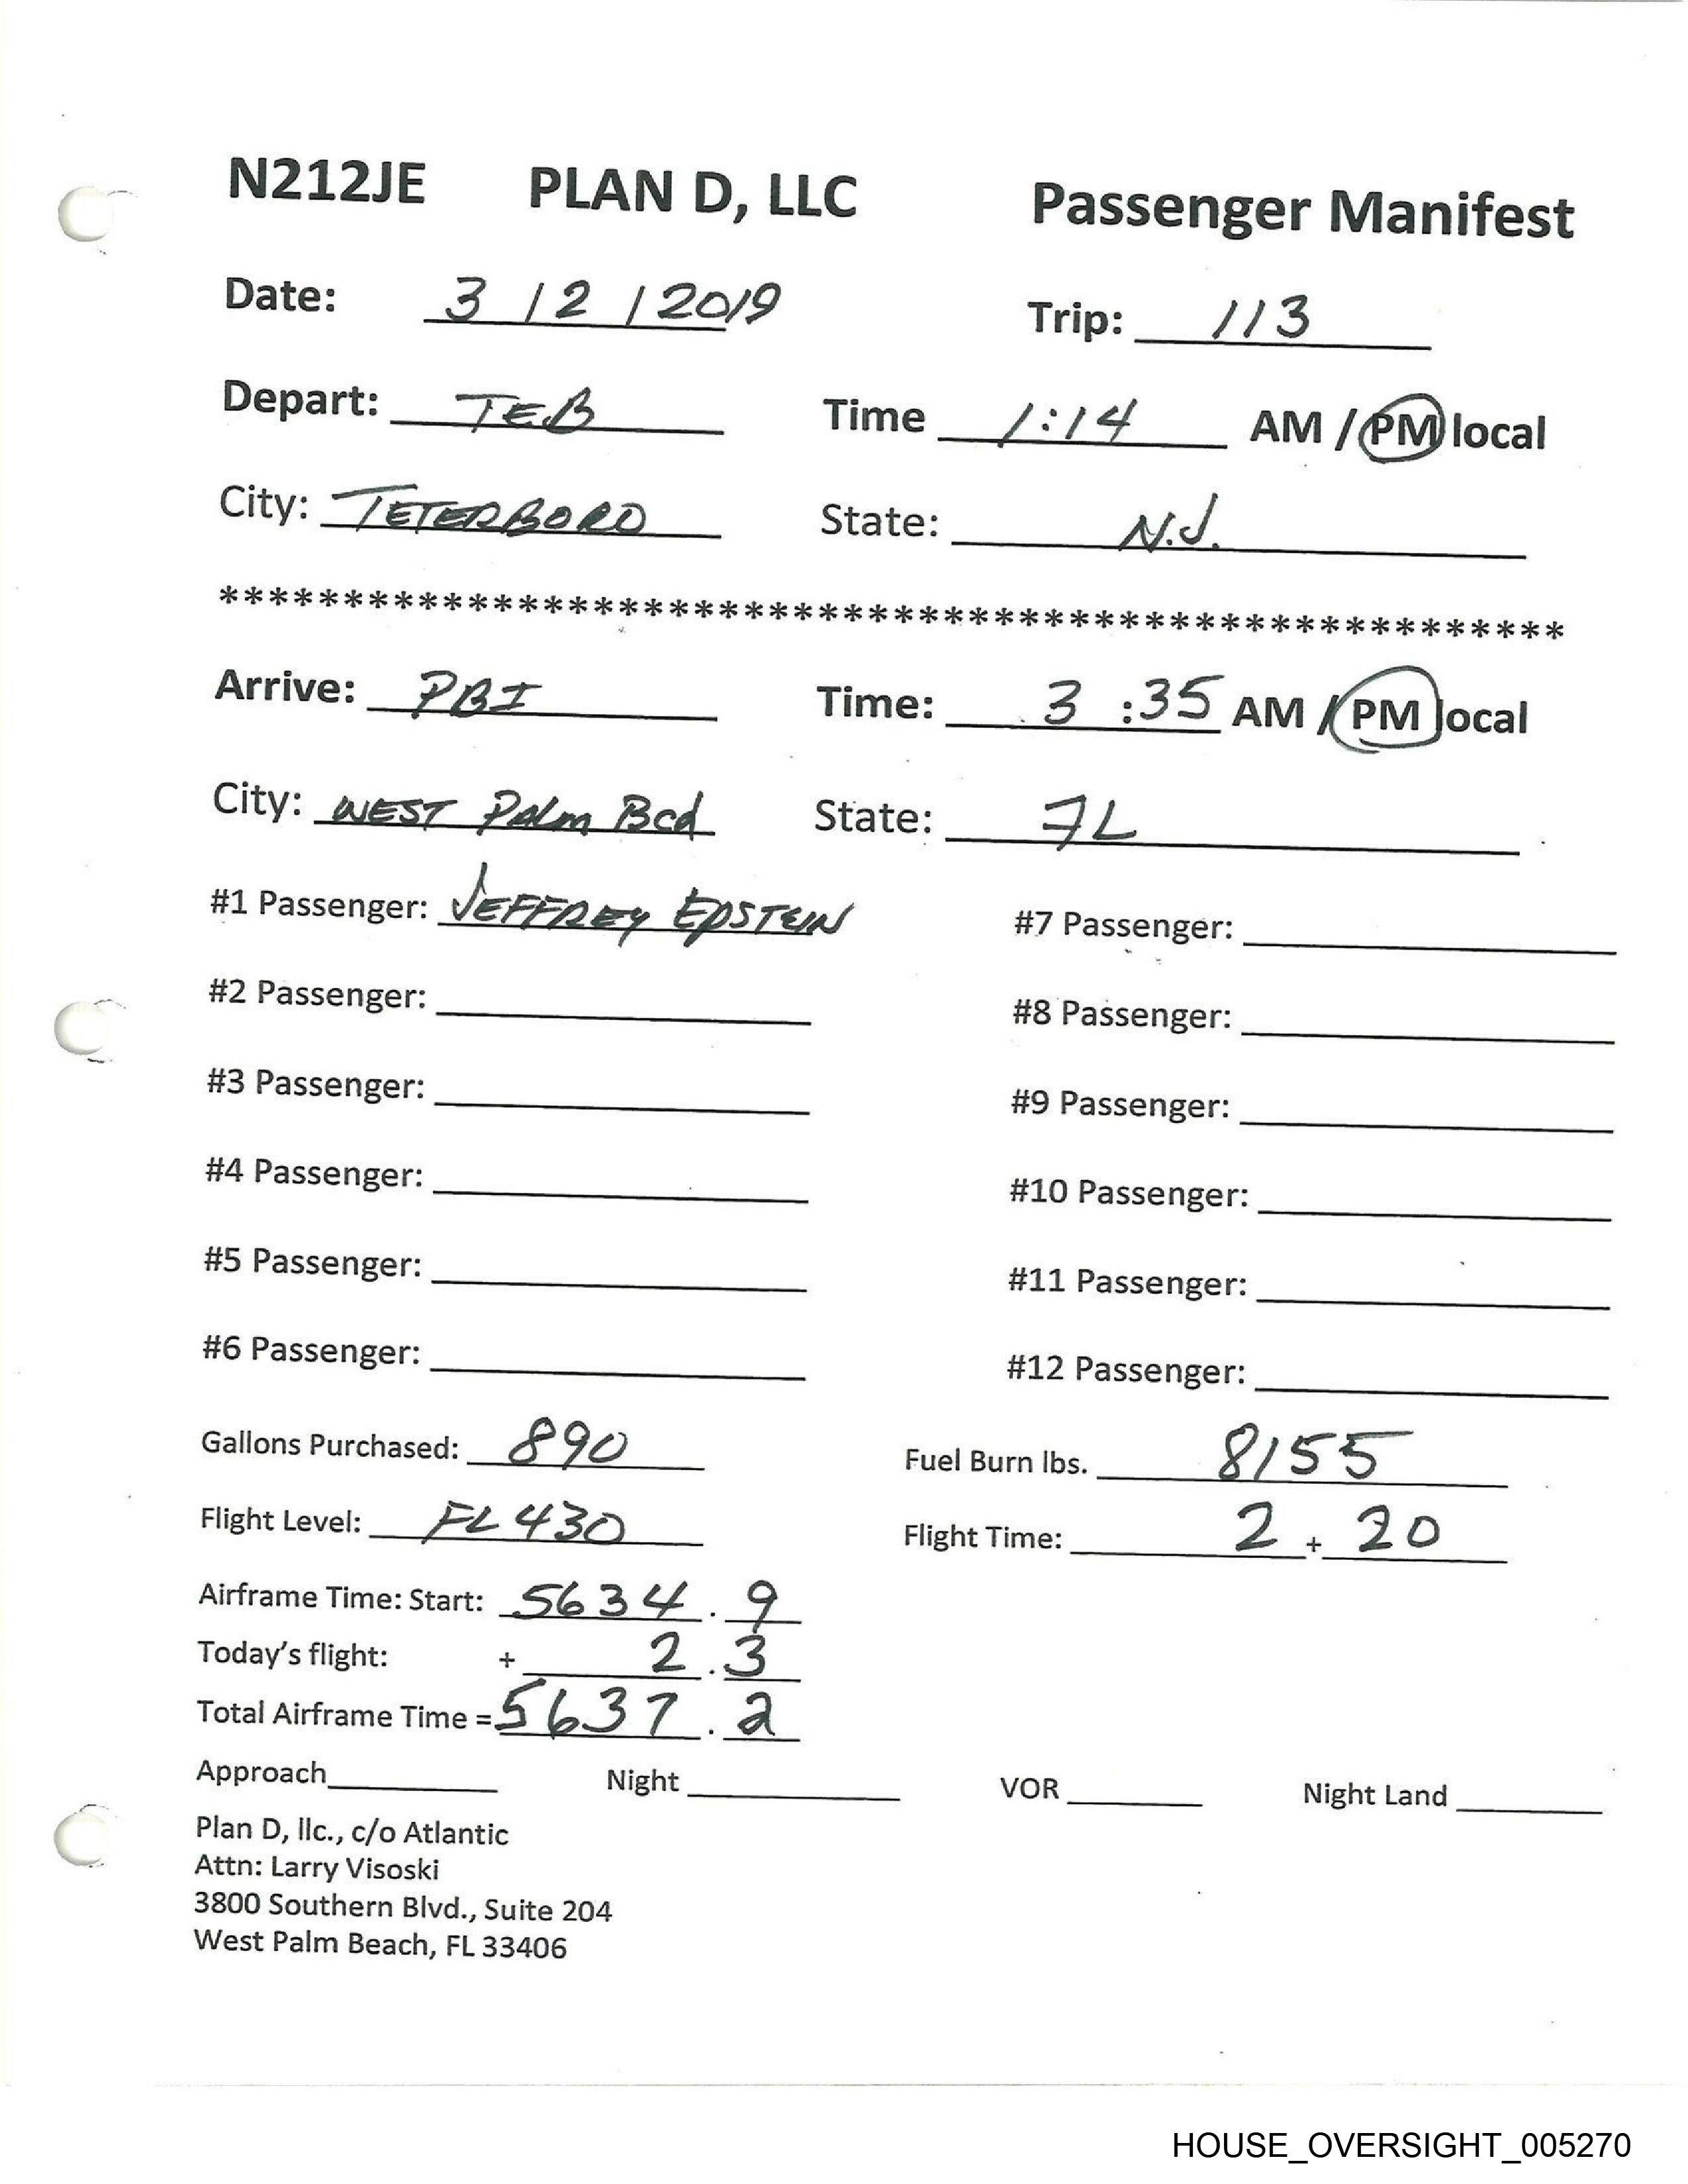 N212JE PLAN D, LLC Passenger Manifest
Date: 3 / 2 / 2019 Trip: 113
Depart: TEB Time 1:14 AM / PM local
City: TETERBORO State: N.J.
******************************************************
Arrive: PBI Time: 3 :35 AM / PM local
City: WEST Palm Bcd State: FL
#1 Passenger: JEFFREY EPSTEIN #7 Passenger:
#2 Passenger: #8 Passenger:
#3 Passenger: #9 Passenger:
#4 Passenger: #10 Passenger:
#5 Passenger: #11 Passenger:
#6 Passenger: #12 Passenger:
Gallons Purchased: 890 Fuel Burn lbs. 8155
Flight Level: FL 430 Flight Time: 2 + 20
Airframe Time: Start: 5634 . 9
Today's flight: + 2 . 3
Total Airframe Time = 5637 . 2
Approach Night VOR Night Land
Plan D, llc., c/o Atlantic
Attn: Larry Visoski
3800 Southern Blvd., Suite 204
West Palm Beach, FL 33406
HOUSE_OVERSIGHT_005270